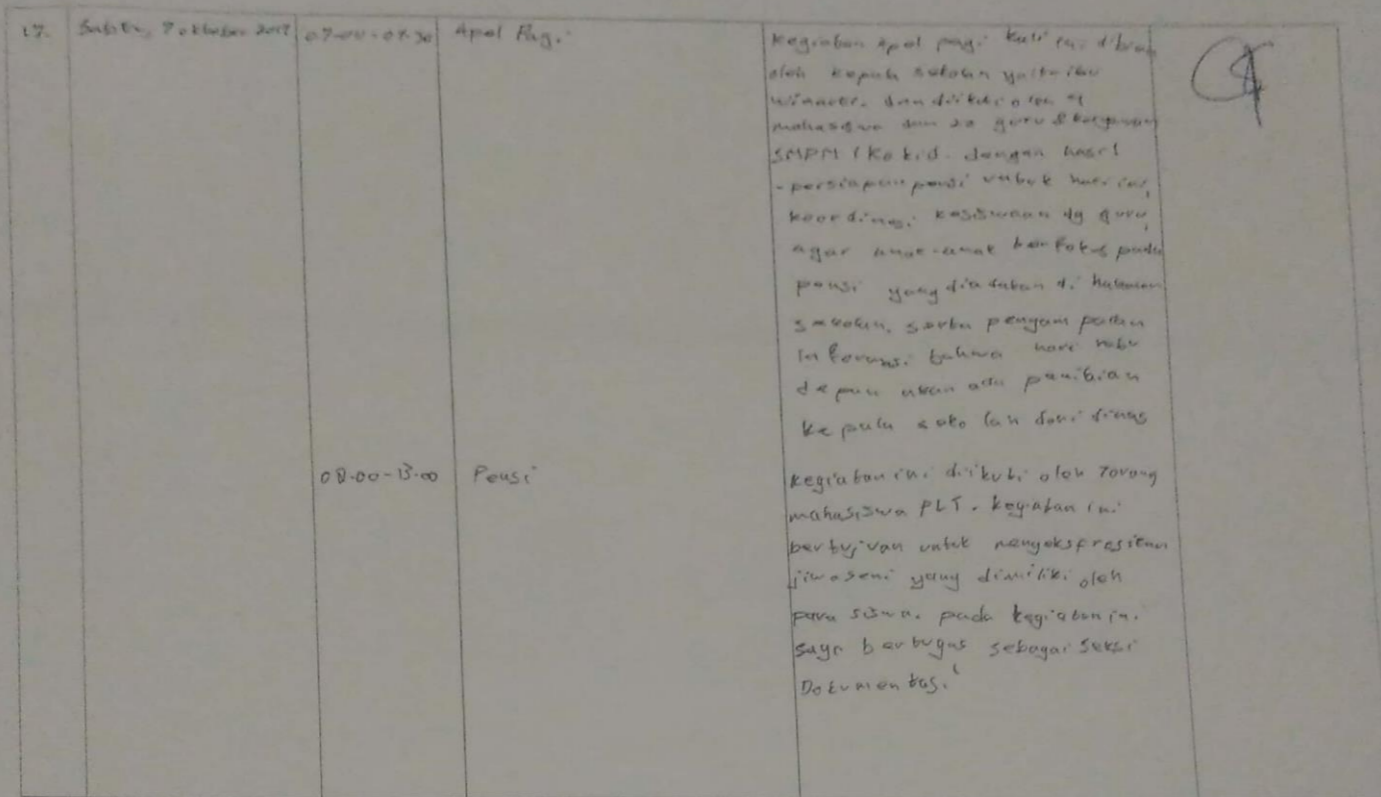 17.
Sabtu, 7 oktober 2017
07.00-07.30
Apel Pagi
Kegiatan Apel pagi kali ini dibina
oleh kepala sekolah yaitu ibu
dan diikuti oleh 9
mahasiswa dan 20 guru & karyawan
SMPM 1 dengan hasil
-persiapan pensi untuk hari ini,
koordinasi kesiswaan dg guru,
agar anak-anak berfokus pada
pensi yang diadakan di halaman
sekolah, serta
informasi bahwa hari rabu
depan akan ada
kepala sekolah dari dinas
08.00-13.00
Pensi
kegiatan ini diikuti oleh 7orang
mahasiswa PLT. kegiatan ini
bertujuan untuk mengekspresikan
jiwa seni yang dimiliki oleh
para siswa. pada kegiatan ini
saya bertugas sebagai seksi
Dokumentasi